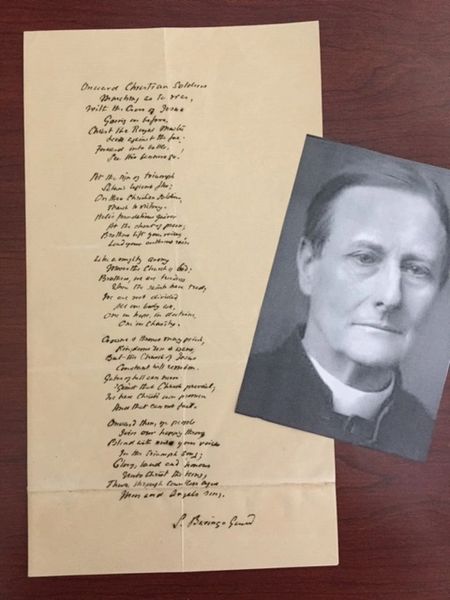 Onward Christian Soldiers
Marching as to war,
With the Cross of Jesus
Going on before.
Christ the Royal Master
Leads against the foe;
Forward into battle,
See His banners go.
At the sign of triumph
Satan's legions flee;
On then Christian Soldiers,
March to Victory.
Hell's foundations quiver
At the shout of praise;
Brothers lift your voices,
Loud your anthems raise.
Like a mighty army
Moves the Church of God;
Brothers, we are treading
Where the saints have trod;
We are not divided
All one body we,
One in hope, in doctrine,
One in Charity.
Crowns & thrones may perish,
Kingdoms rise & wane,
But the Church of Jesus
Constant will remain.
Gates of hell can never
'Gainst that Church prevail;
We have Christ's own promise
And that cannot fail.
Onward then, ye people
Join our happy throng
Blend with your voices
In the triumph song;
Glory, laud and honour
Unto Christ the King,
through countless ages
Men and Angels sing.
S. Baring-Gould